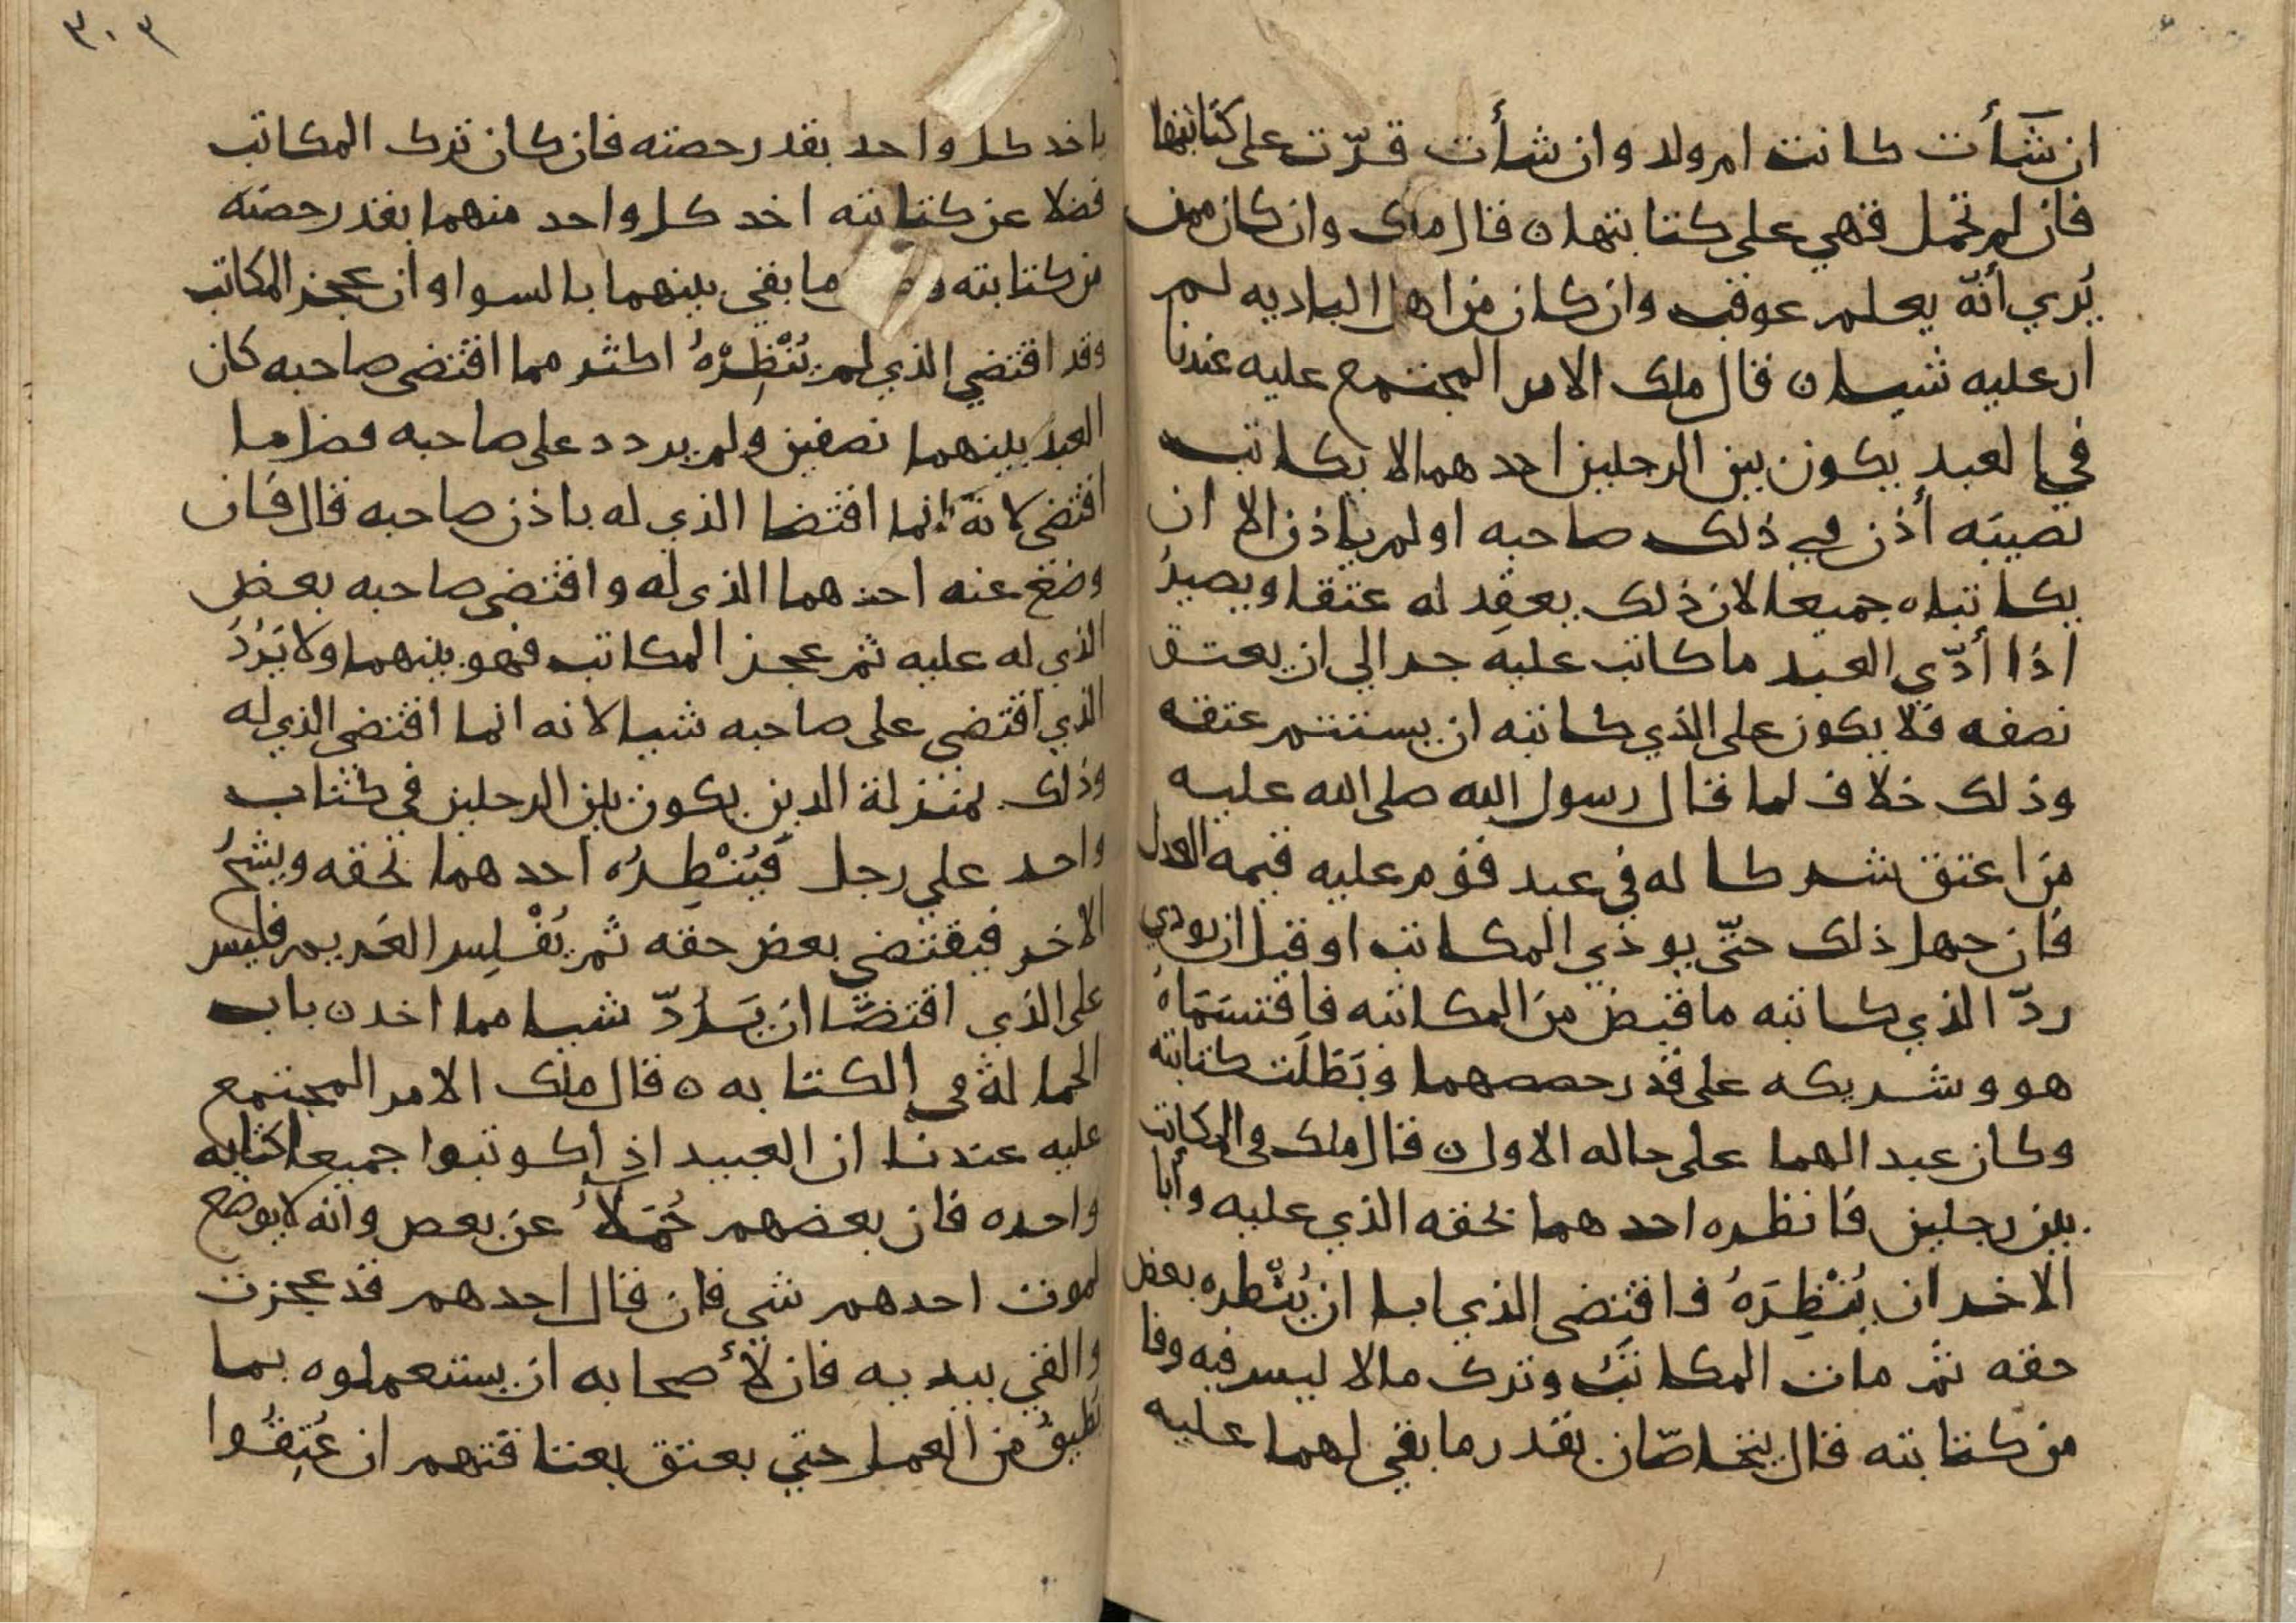 ان شأت كانت ام ولد وان شأت قرّت على كتابتها
فان لم تحمل فهي على كتابتها ه قال ملك وان كان ممن
يُري أنّه يعلم عوقب وان كان من اهل الباديه لم
ار عليه شيا ه قال ملك الامر المجتمع عليه عندنا
في العبد يكون بين الرجلين احدهما لا يكاتب
نصيبَه أذن في ذلك صاحبه او لم ياذن الا ان
يكاتباه جميعا لان ذلك يعقِد له عتقا ويصيرُ
اذا أدّي العبد ما كاتب عليه جد الي ان يعتق
نصفه فلا يكون على الذي كاتبه ان يستتم عتقه
وذلك خلاف لما قال رسول الله صلى الله عليه
من اعتق شركا له في عبد قوم عليه قيمه العدل
فان جهل ذلك حتّى يودي المكاتب او قبل ان يودي
ردّ الذي كاتبه ما قبض من المكاتبه فاقتسَمَاهُ
هو وشريكه على قدر حصصهما وبَطَلَت كتابته
وكان عبد الهما على حاله الاول ه قال ملك في المكاتب
بين رجلين فانظره احدهما بحقه الذي عليه وأبا
الاخر ان يُنْظِرَهُ فاقتضى الذي ابا ان يُنْظره بعض
حقه ثم مات المكاتَبُ وترك مالا ليس فيه وفا
من كتابته قال يتحاصّان بقدر ما بقي لهما عليه
٣٠٣
ياخد كل واحد بقدر حصته فان كان ترك المكاتب
فضلا عن كتابته اخد كل واحد منهما بقدر حصته
من كتابته ما بقي بينهما بالسوا وان عجز المكاتب
وقد اقتضي الذي لم يُنْظِرْهُ اكثر مما اقتضى صاحبه كان
العبد بينهما نصفين ولم يردد على صاحبه فضل ما
اقتضى لانهّ انما اقتضا الذي له باذن صاحبه قال فان
وضع عنه احدهما الذي له واقتضى صاحبه بعض
الذي له عليه ثم عجز المكاتب فهو بينهما ولا يَرُدُّ
الذي اقتضي على صاحبه شيا لانه انما اقتضى الذي له
وذلك بمنزلة الدين يكون بين الرجلين في كتاب
واحد علي رجل فيُنْظِرُه احدهما بحقه ويشحُّ
الاخر فيقتضي بعض حقه ثم يُفْلِس الغريم فليس
على الذي اقتضّا ان يَرُدّ شيا مما اخد ه باب
الحمالة في الكتابه ه قال ملك الامر المجتمع
عليه عندنا ان العبيد اذا كوتبوا جميعا كتابه
واحده فان بعضهم حُمَلاءُ عن بعض وانه لا يوضع
لموت احدهم شي فان قال احدهم قد عجزت
والقي بيديه فان لأصحابه ان يستعملوه بما
يطيق من العمل حتي يعتق بعتاقتهم ان عُتِقُوا